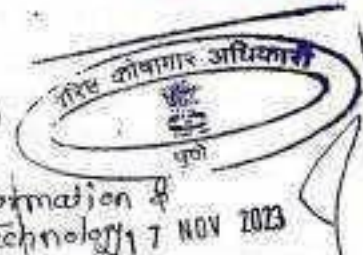 वरिष्ठ कोषागार अधिकारी
पुणे
ormation &
echnology 17 NOV 2023